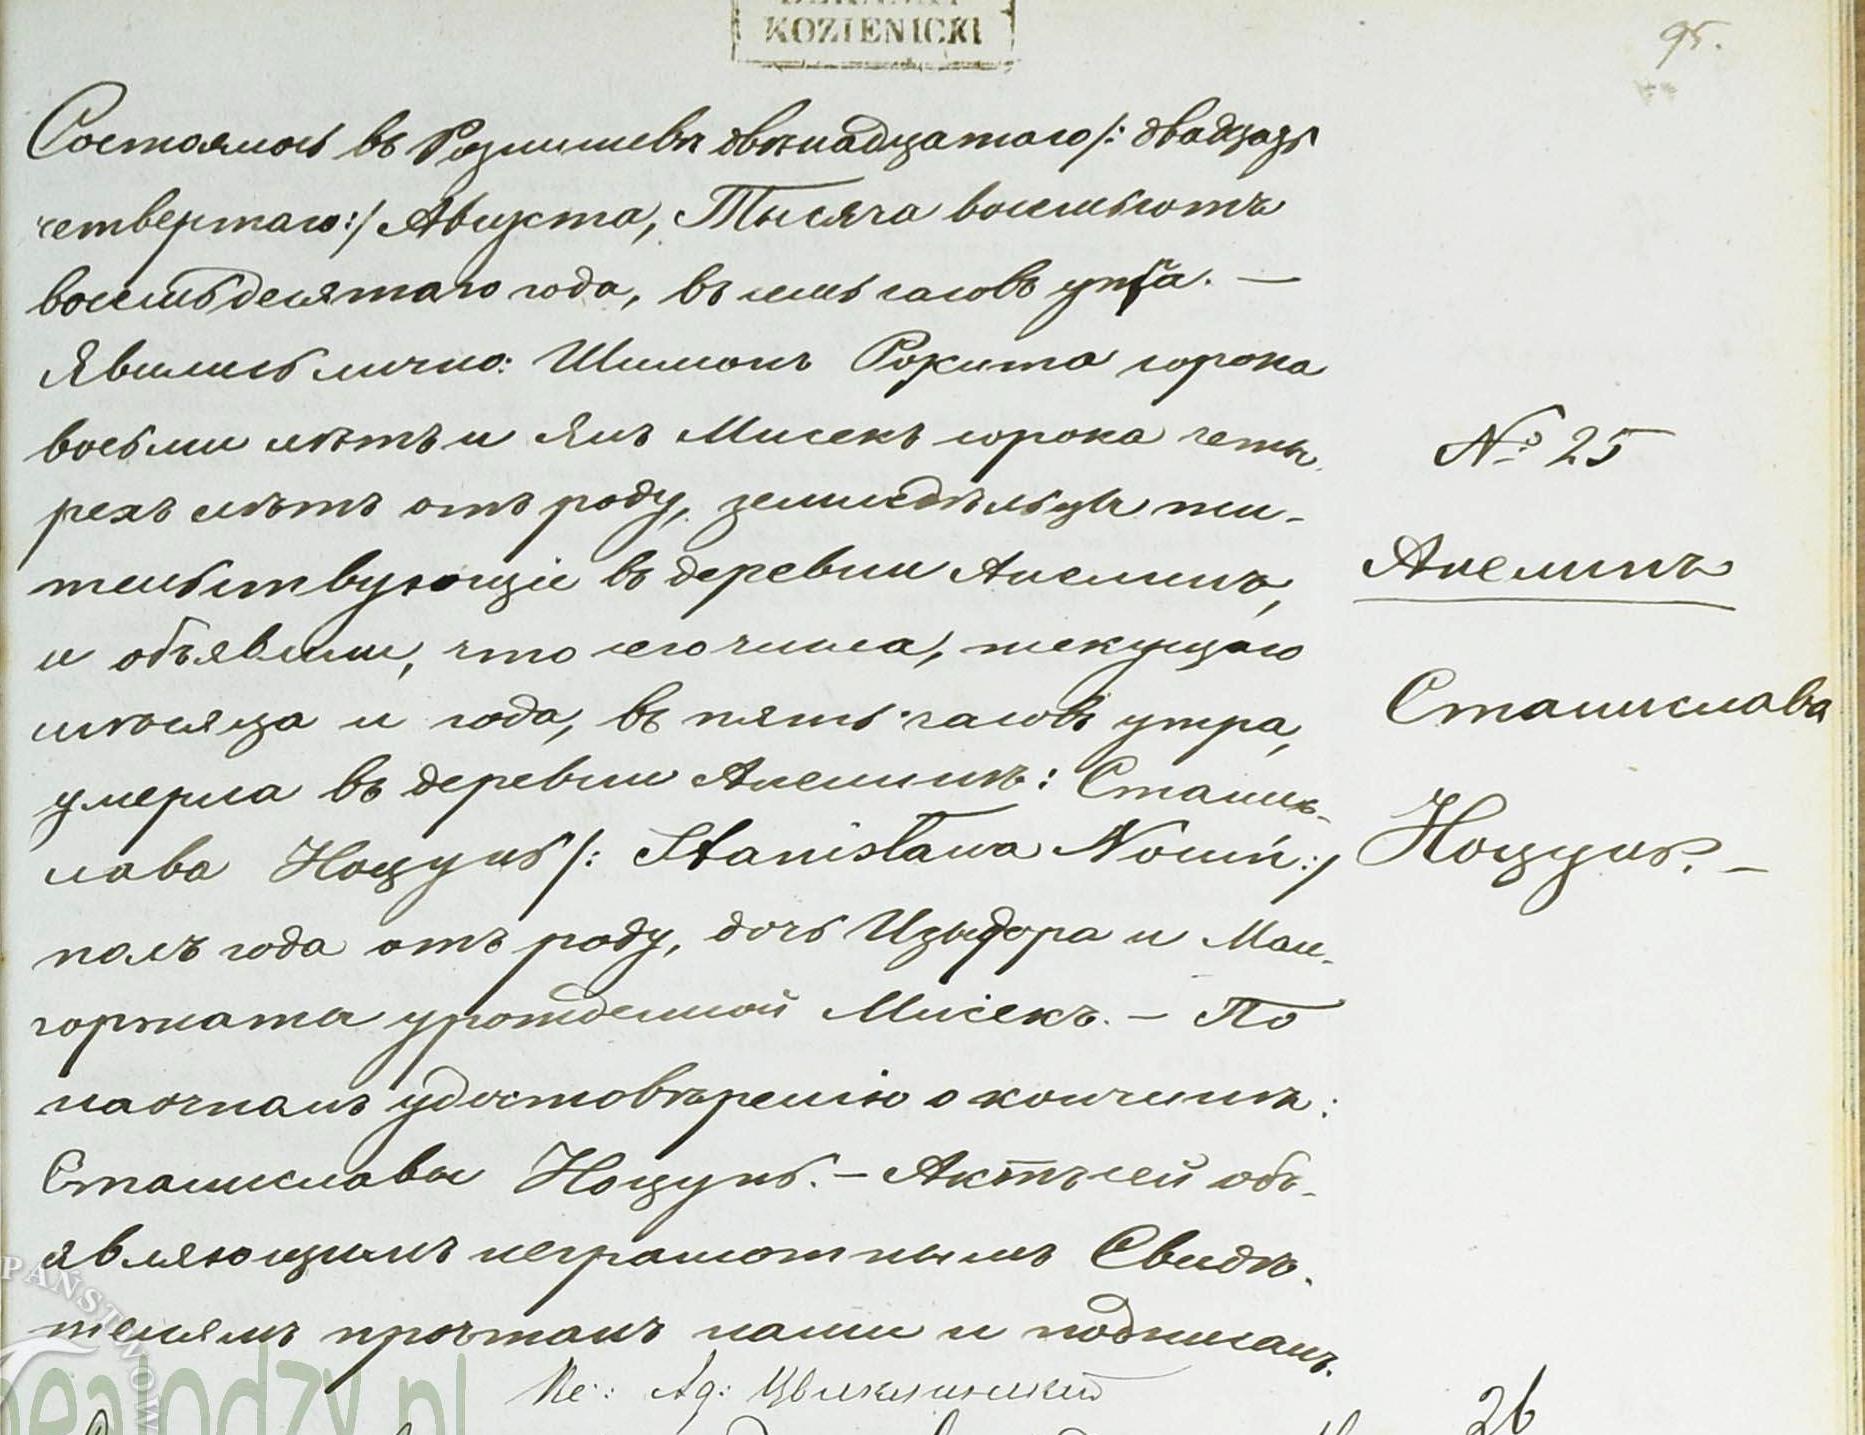 KOZIENICKI
95.
Состоялось въ Рознишевѣ двѣнадцатаго /: двадцать
четвертаго :/ Августа, Тысяча восемьсотъ
восемьдесятаго года, въ семь часовъ утра. —
Явились лично: Шимонъ Рокита сорока
восьми лѣтъ и Янъ Мисекъ сорока четы-
рехъ лѣтъ отъ роду, земледѣльцы жи-
тельствующіе въ деревни Анелинъ,
и объявили, что сего числа, текущаго
мѣсяца и года, въ пять часовъ утра,
умерла въ деревни Анелинѣ: Станис-
лава Ноцунь /: Stanisława Nocuń :/
полъ года отъ роду, дочь Изыдора и Мал-
горжаты урожденной Мисекъ. — По
наочнамъ удостовѣренію о кончинѣ:
Станиславы Ноцунь. — Актъ сей объ-
являющимъ неграмотнымъ Свидѣ-
телямъ прочтанъ нами и подписанъ.
Кс: Ад:
№ 25
Анелинъ
Станислава
Ноцунь. —
26
PAŃSTWOW
nealodzy.pl